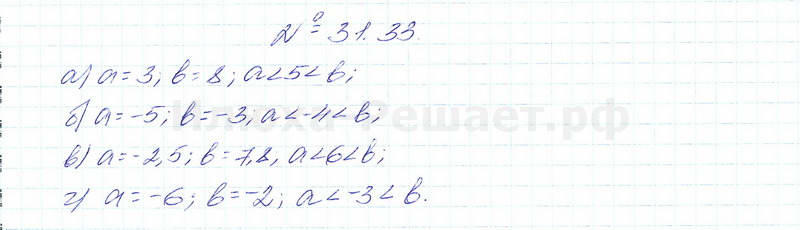 № 31.33.
а) a = 3; b = 8; a < 5 < b;
б) a = -5; b = -3; a < -4 < b;
в) a = -2,5; b = 7,8, a < 6 < b;
г) a = -6; b = -2; a < -3 < b.
Илюха-Решает.рф